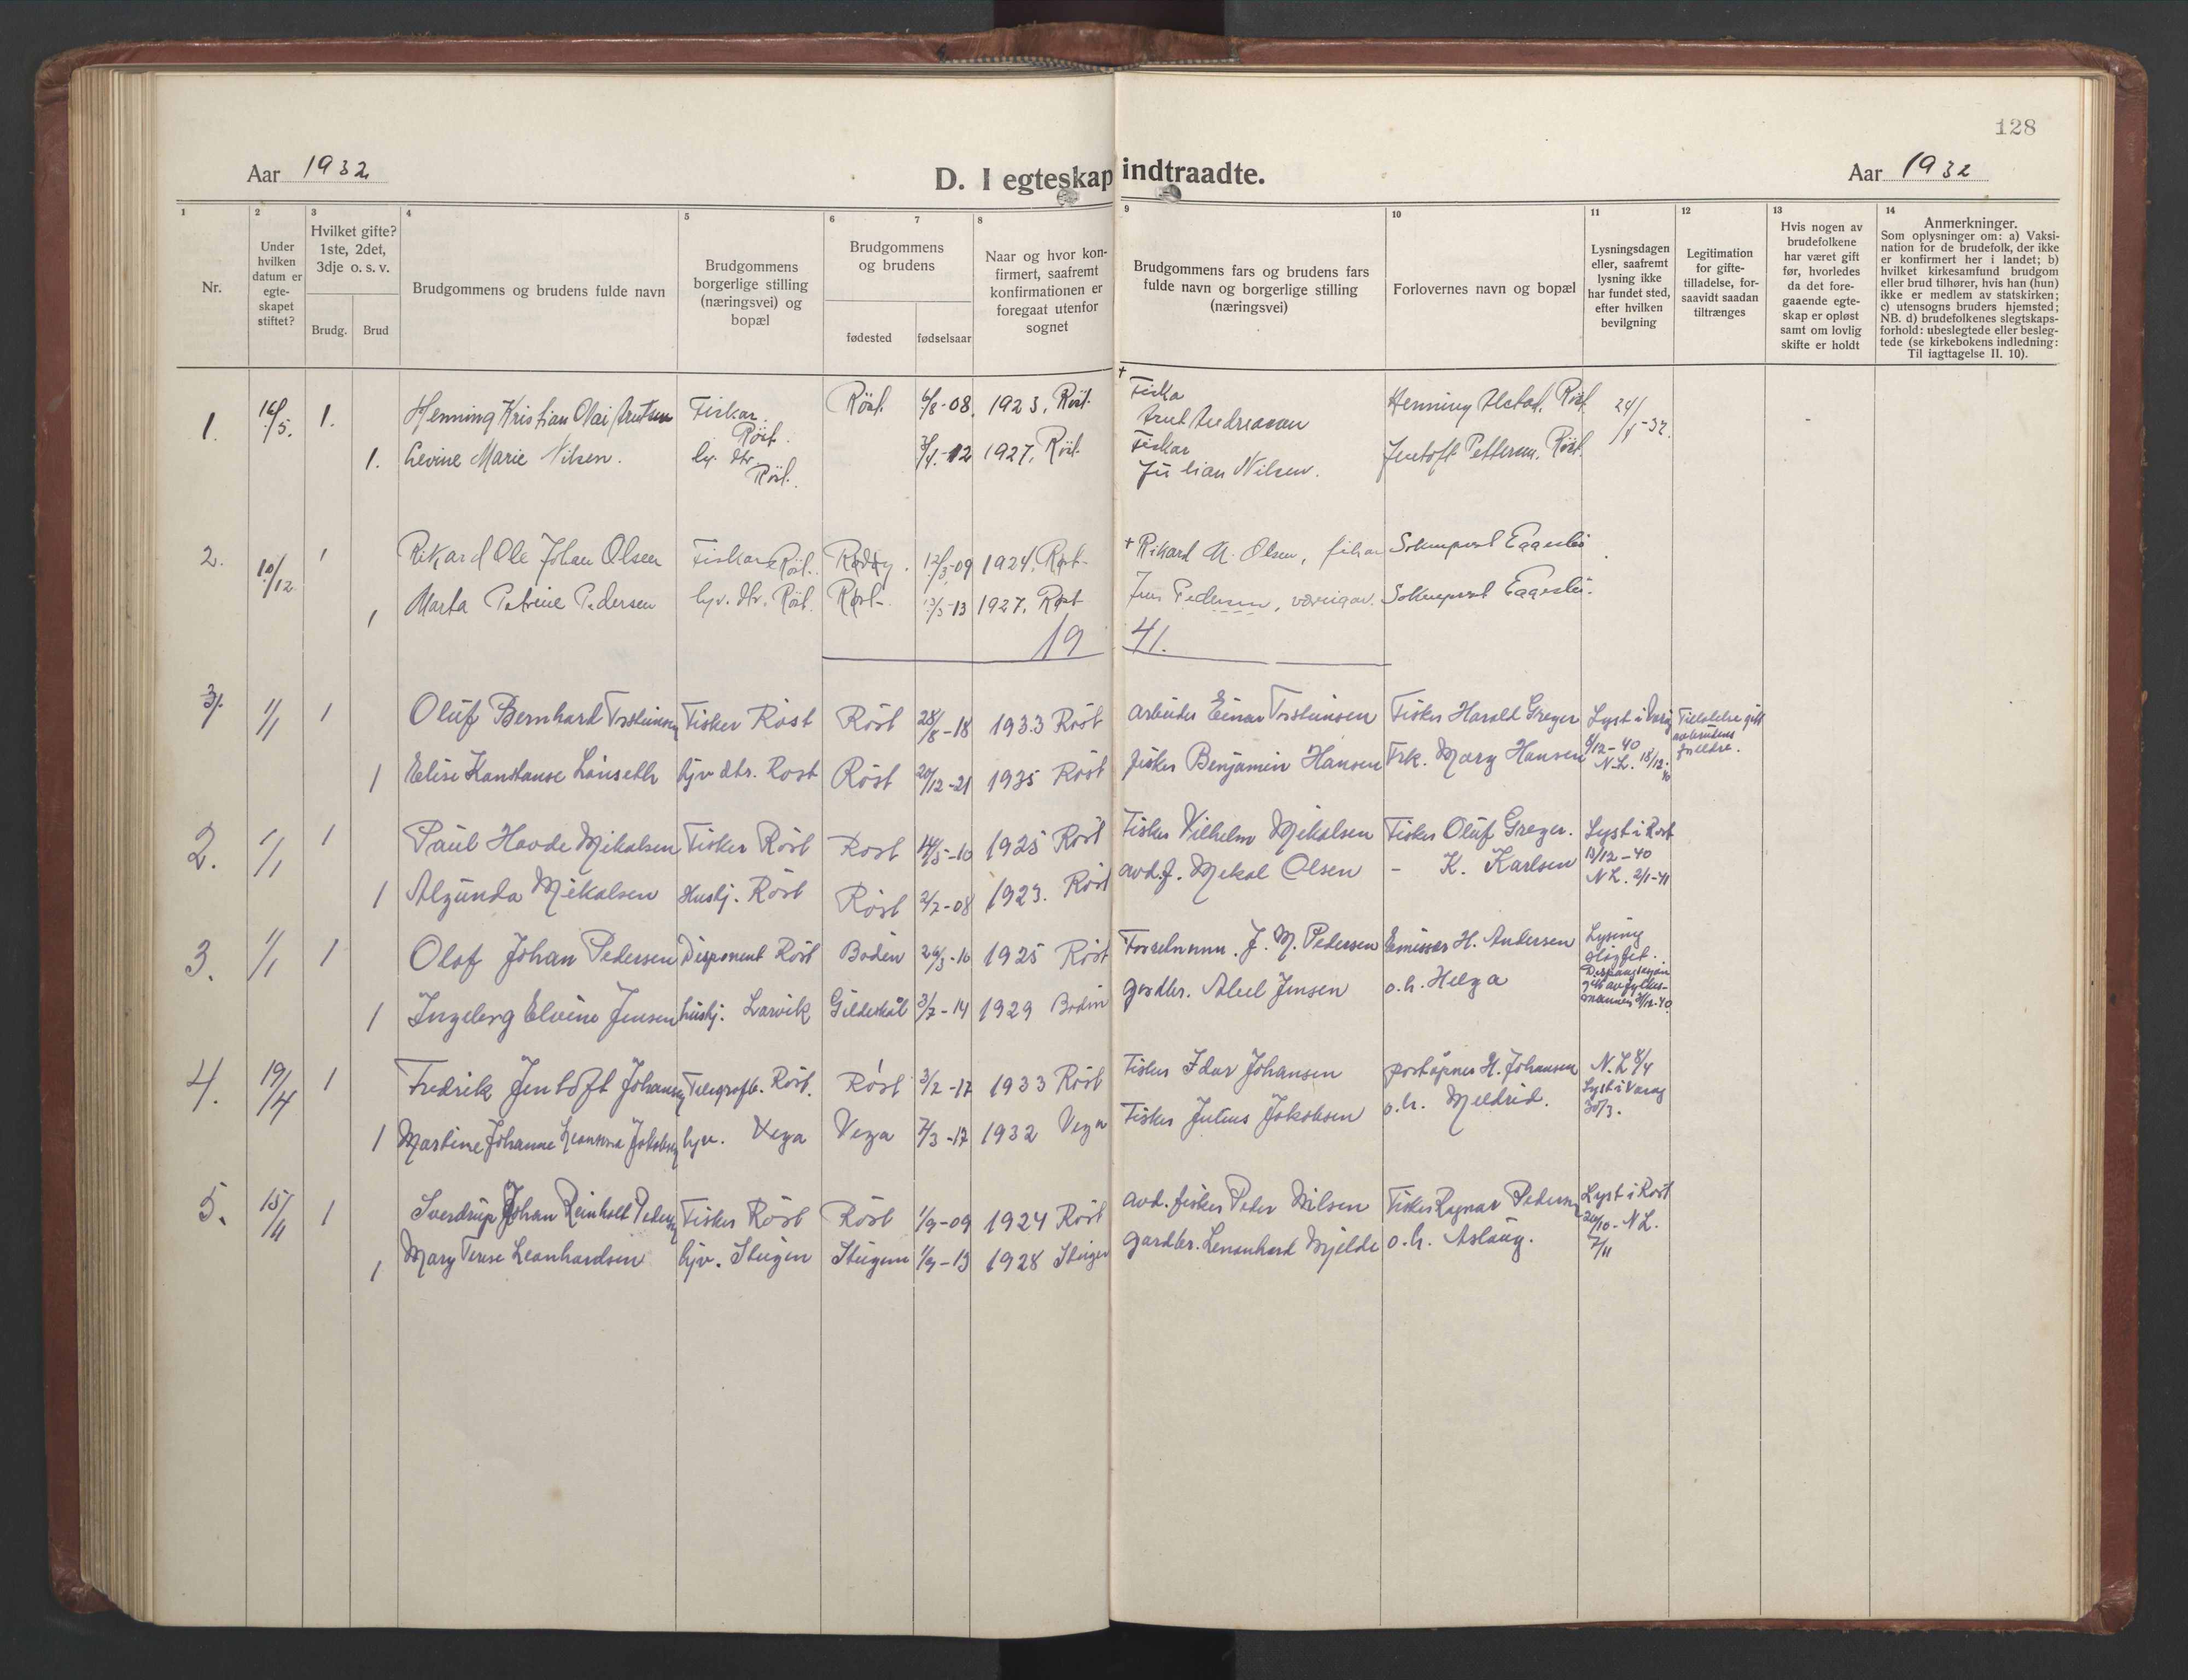 128
Aar 1932
D. I egteskap indtraadte.
Aar 1932
1
2
3
4
5
6
7
8
9
10
11
12
13
14
Nr.
Under hvilken datum er egte-skapet stiftet?
Hvilket gifte? 1ste, 2det, 3dje o. s. v.
Brudg.
Brud
Brudgommens og brudens fulde navn
Brudgommens borgerlige stilling (næringsvei) og bopæl
Brudgommens og brudens
fødested
fødselsaar
Naar og hvor kon-firmert, saafremt konfirmationen er foregaat utenfor sognet
Brudgommens fars og brudens fars fulde navn og borgerlige stilling (næringsvei)
Forlovernes navn og bopæl
Lysningsdagen eller, saafremt lysning ikke har fundet sted, efter hvilken bevilgning
Legitimation for gifte-tilladelse, for-saavidt saadan tiltrænges
Hvis nogen av brudefolkene har været gift før, hvorledes da det fore-gaaende egte-skap er opløst samt om lovlig skifte er holdt
Anmerkninger.
Som oplysninger om: a) Vaksi-nation for de brudefolk, der ikke er konfirmert her i landet; b) hvilket kirkesamfund brudgom eller brud tilhører, hvis han (hun) ikke er medlem av statskirken; c) utensogns bruders hjemsted; NB. d) brudefolkenes slegtskaps-forhold: ubeslegtede eller besleg-tede (se kirkebokens indledning: Til iagttagelse II. 10).
1. 16/5. 1. Henning Kristian Olai Arntsen Fiskar Røst. Røst. 6/8-08. 1923. Røst. + Fiska Arnt Andreassen Henning Ulstad, Røst 24/
1. Levine Marie Nilsen. Røst. 1927. Røst. Fiskar Julian Nilsen. Jentoft Pettersen, Røst.
2. 10/12 1 Rikard Ole Johan Olsen Fiskar Røst. 12/3-09 1924. Røst. + Rikard Olsen, fiskar
1 Marta Petrine Pedersen Røst. Røst. 1927. Røst Jens Pedersen,
19 41.
1/1 1 Oluf Bernhard Torsteinsen Fisker Røst Røst 28/8-18 1933 Røst arbeider Einar Torsteinsen Fisker Harald Greger Lyst i Værøy 8/12-40 N.L. 18/12-40 Tillatelse gitt av brudens foreldre.
1 Elise Konstanse Lønseth hjv dtr. Rost Röst 20/12-21 1935 Röst fisker Benjamin Hansen Frk. Mary Hansen
2. 1/1 1 Paul Hovde Mikalsen Fisker Röst Rost 14/5-10 1925 Röst Fisker Vilhelm Mikalsen Fisker Oluf Greger. Lyst i Rost 13/12-40 N.L. 2/1-41
1 Alzünda Mikalsen Hushj. Röst Röst 2/7-08 1923. Röst avd. f. Mekal Olsen - K. Karlsen
3. 1/1 1 Olof Johan Pedersen Disponent Röst Bodin 1925 Röst J. M. Pedersen Emissær H. Andersen Lysing
1 Ingeborg Elvine Jensen hushj. Larvik Gildeskål 3/7-14 1929 Bodin gardbr. Abel Jensen o.h. Helga
4. 19/4 1 Fredrik Jentoft Johansen Telegrafb. Röst. Röst 3/2-17 1933 Röst Fisker Idar Johansen poståpner H. Johansen N.L. 8/4 Lyst i Værøy 30/3.
1 Martine Johanne Jakobsen hjv. Vega Vega 7/3-17 1932 Vega Fisker Julius Jakobsen o.h. Meldrid.
5. 15/11 1 Sverdrup Johan Reinholt Pedersen Fisker Röst Röst 1/9-09 1924 Röst avd. fisker Peder Nilsen Fisker Ragnar Pedersen Lyst i Rost 20/10 - N.L. 7/11
1 Mary Terese Leonhardsen hjv. Steigen Steigen 1/9-13 1928 Steigen gardbr. Lenonhard Mjelde o.h. Aslaug.